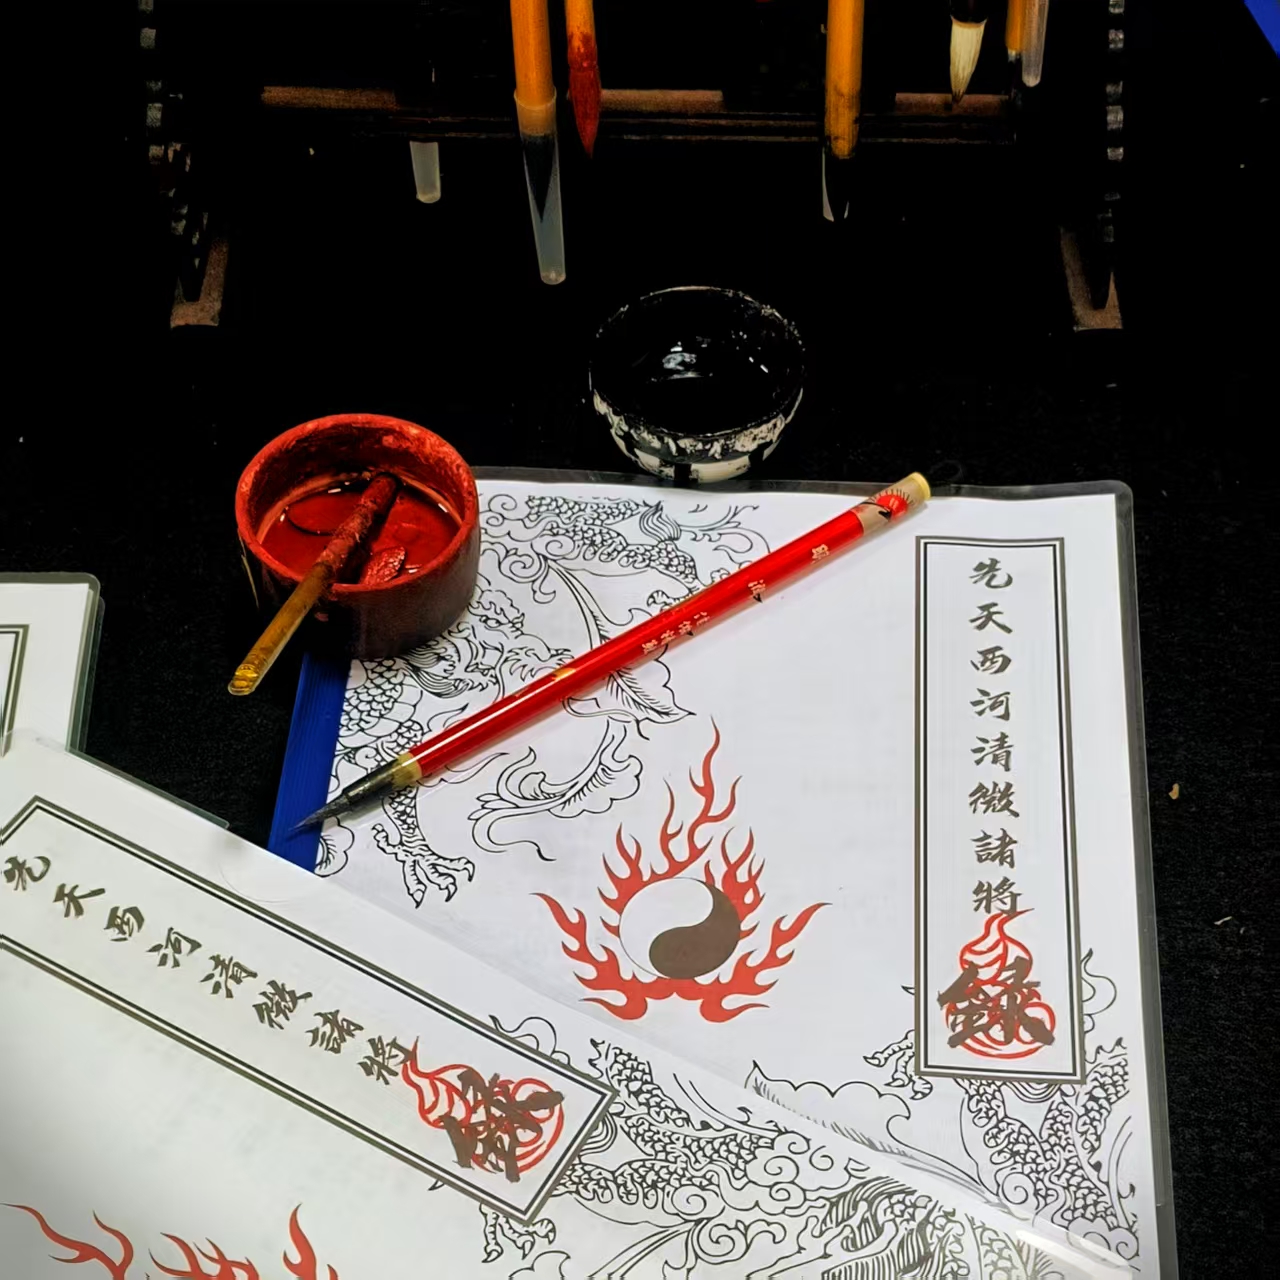 先天西河清微諸將
錄
先天西河清微諸將
錄